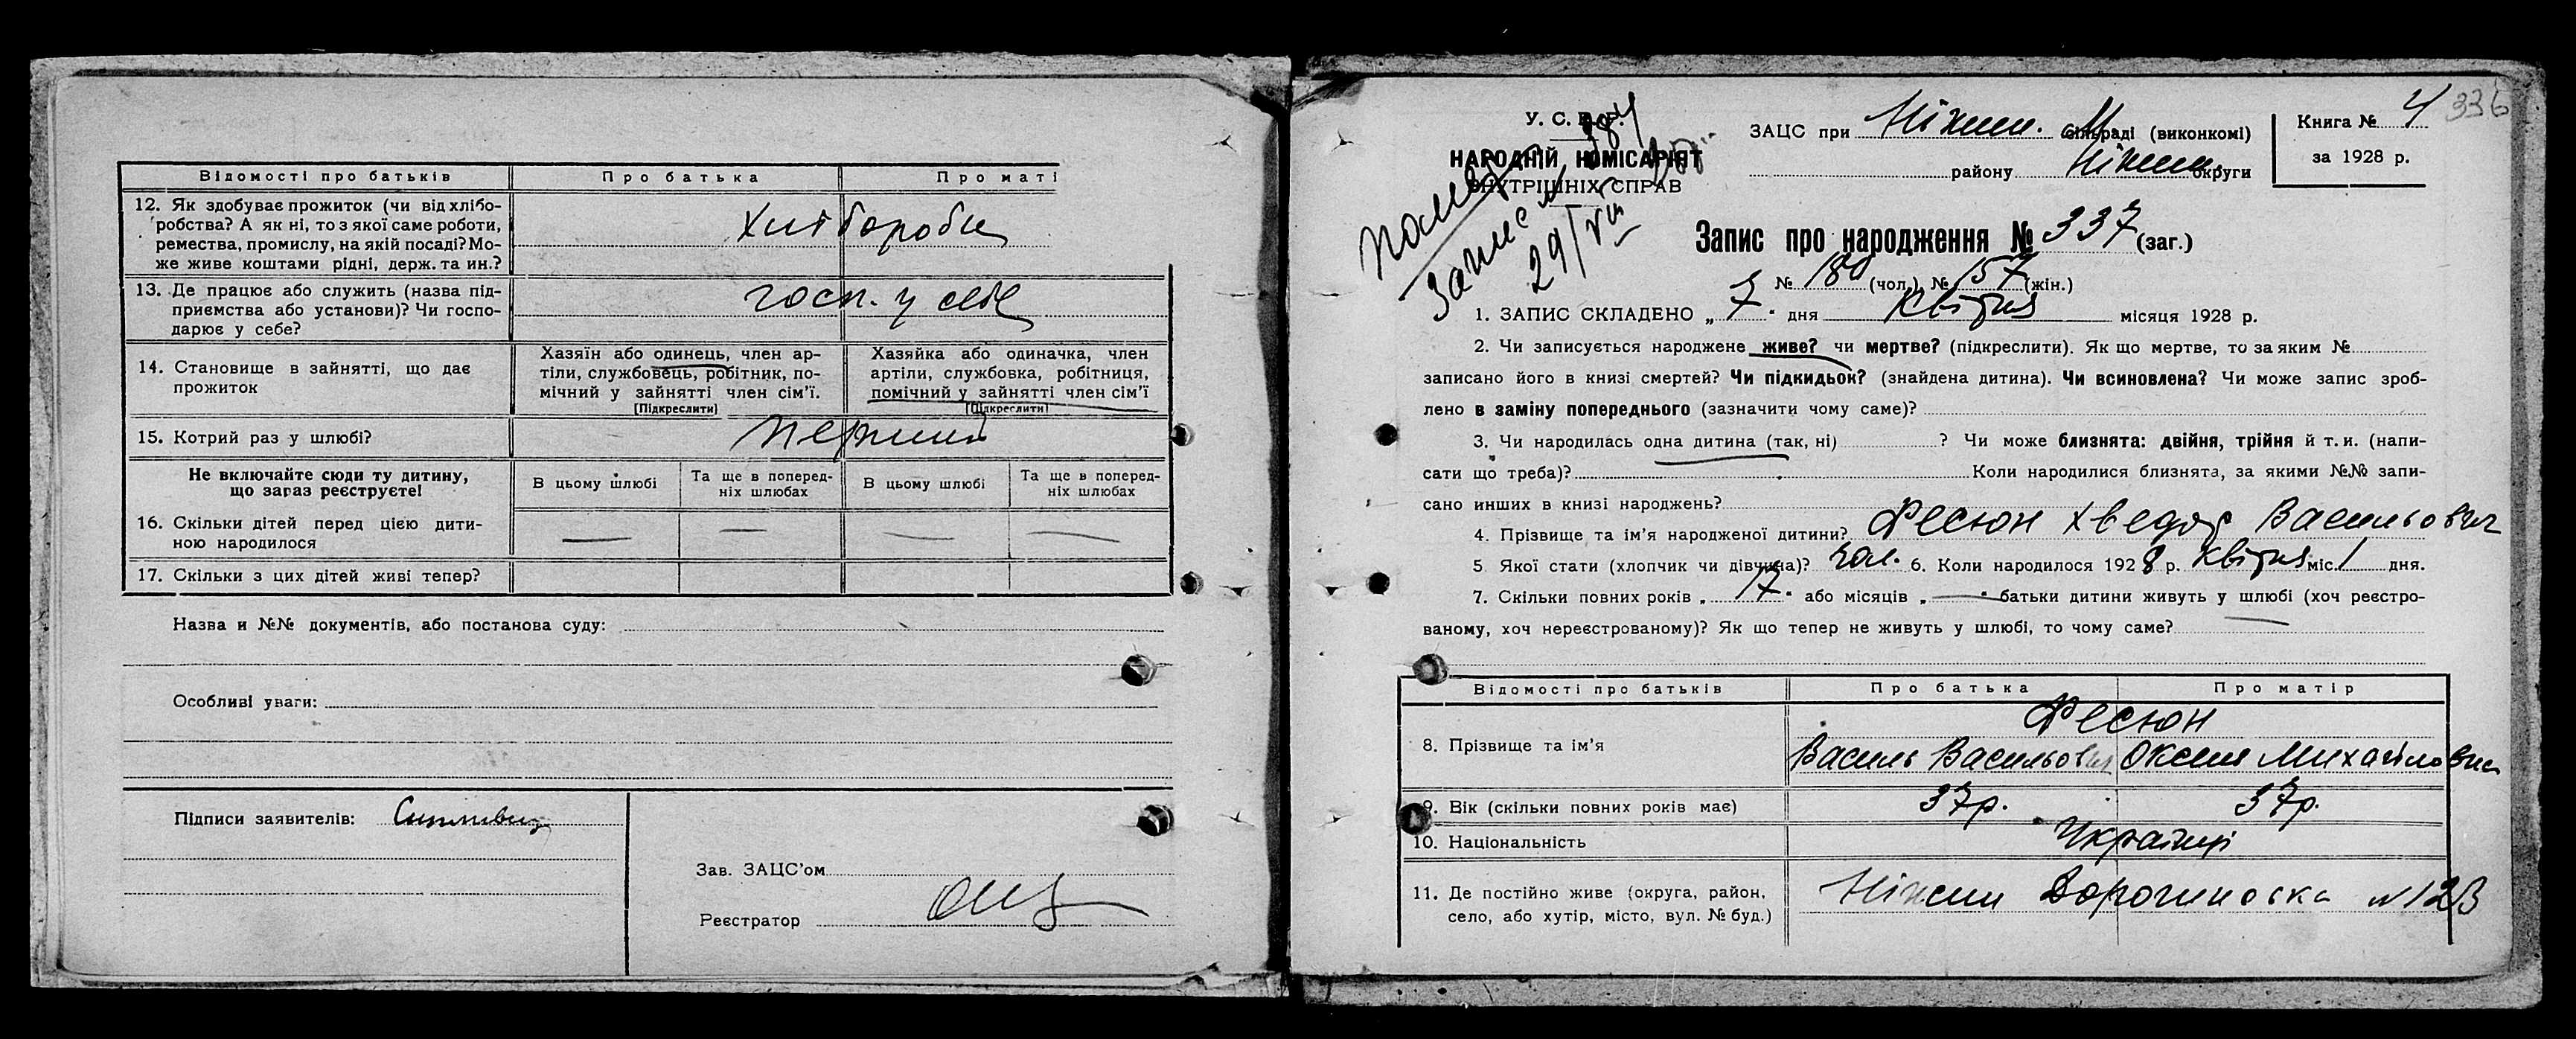 Відомості про батьків Про батька Про маті
12. Як здобуває прожиток (чи від хлібо-
робства? А як ні, то з якої саме роботи,
ремества, промислу, на якій посаді? Мо-
же живе коштами рідні, держ. та ин.?
Хліборобы
13. Де працює або служить (назва під-
приємства або установи)? Чи госпо-
дарює у себе?
госп. у себе
14. Становище в зайнятті, що дає
прожиток
Хазяїн або одинець, член ар-
тіли, службовець, робітник, по-
мічний у зайнятті член сім'ї.
(Підкреслити)
Хазяйка або одиначка, член
артіли, службовка, робітниця,
помічний у зайнятті член сім'ї
(Підкреслити)
15. Котрий раз у шлюбі? перший
Не включайте сюди ту дитину,
що зараз реєструєте!
В цьому шлюбі Та ще в поперед-
ніх шлюбах В цьому шлюбі Та ще в поперед-
ніх шлюбах
16. Скільки дітей перед цією дити-
ною народилося — — — —
17. Скільки з цих дітей живі тепер?
Назва и №№ документів, або постанова суду:
Особливі уваги:
Підписи заявителів:
Зав. ЗАЦС'ом
Реєстратор
336
У. С. Р. Р.
НАРОДНІЙ КОМІСАРІЯТ
ВНУТРІШНІХ СПРАВ
29/VII
ЗАЦС при Ніжин. М сільраді (виконкомі)
району Ніжин. округи
Книга № 4
за 1928 р.
Запис про народження № 337 (заг.)
№ 180 (чол.) № 157 (жін.)
1. ЗАПИС СКЛАДЕНО „ 7 " дня квітня місяця 1928 р.
2. Чи записується народжене живе? чи мертве? (підкреслити). Як що мертве, то за яким №
записано його в книзі смертей? Чи підкидьок? (знайдена дитина). Чи всиновлена? Чи може запис зроб-
лено в заміну попереднього (зазначити чому саме)?
3. Чи народилась одна дитина (так, ні) ? Чи може близнята: двійня, трійня й т. и. (напи-
сати що треба)? Коли народилися близнята, за якими №№ запи-
сано инших в книзі народжень?
4. Прізвище та ім'я народженої дитини? Фесюн Хведяр Васильович
5 Якої стати (хлопчик чи дівчина)? чол. 6. Коли народилося 1928 р. квітня міс. 1 дня.
7. Скільки повних років „ 17 " або місяців „ — " батьки дитини живуть у шлюбі (хоч реєстро-
ваному, хоч нереєстрованому)? Як що тепер не живуть у шлюбі, то чому саме?
Відомості про батьків Про батька Про матір
8. Прізвище та ім'я
Фесюн
Василь Васильович Оксена Михайловна
9. Вік (скільки повних років має) 37р. 37р.
10. Національність Українці
11. Де постійно живе (округа, район,
село, або хутір, місто, вул. № буд.)
Ніжин Дорогинська № 123